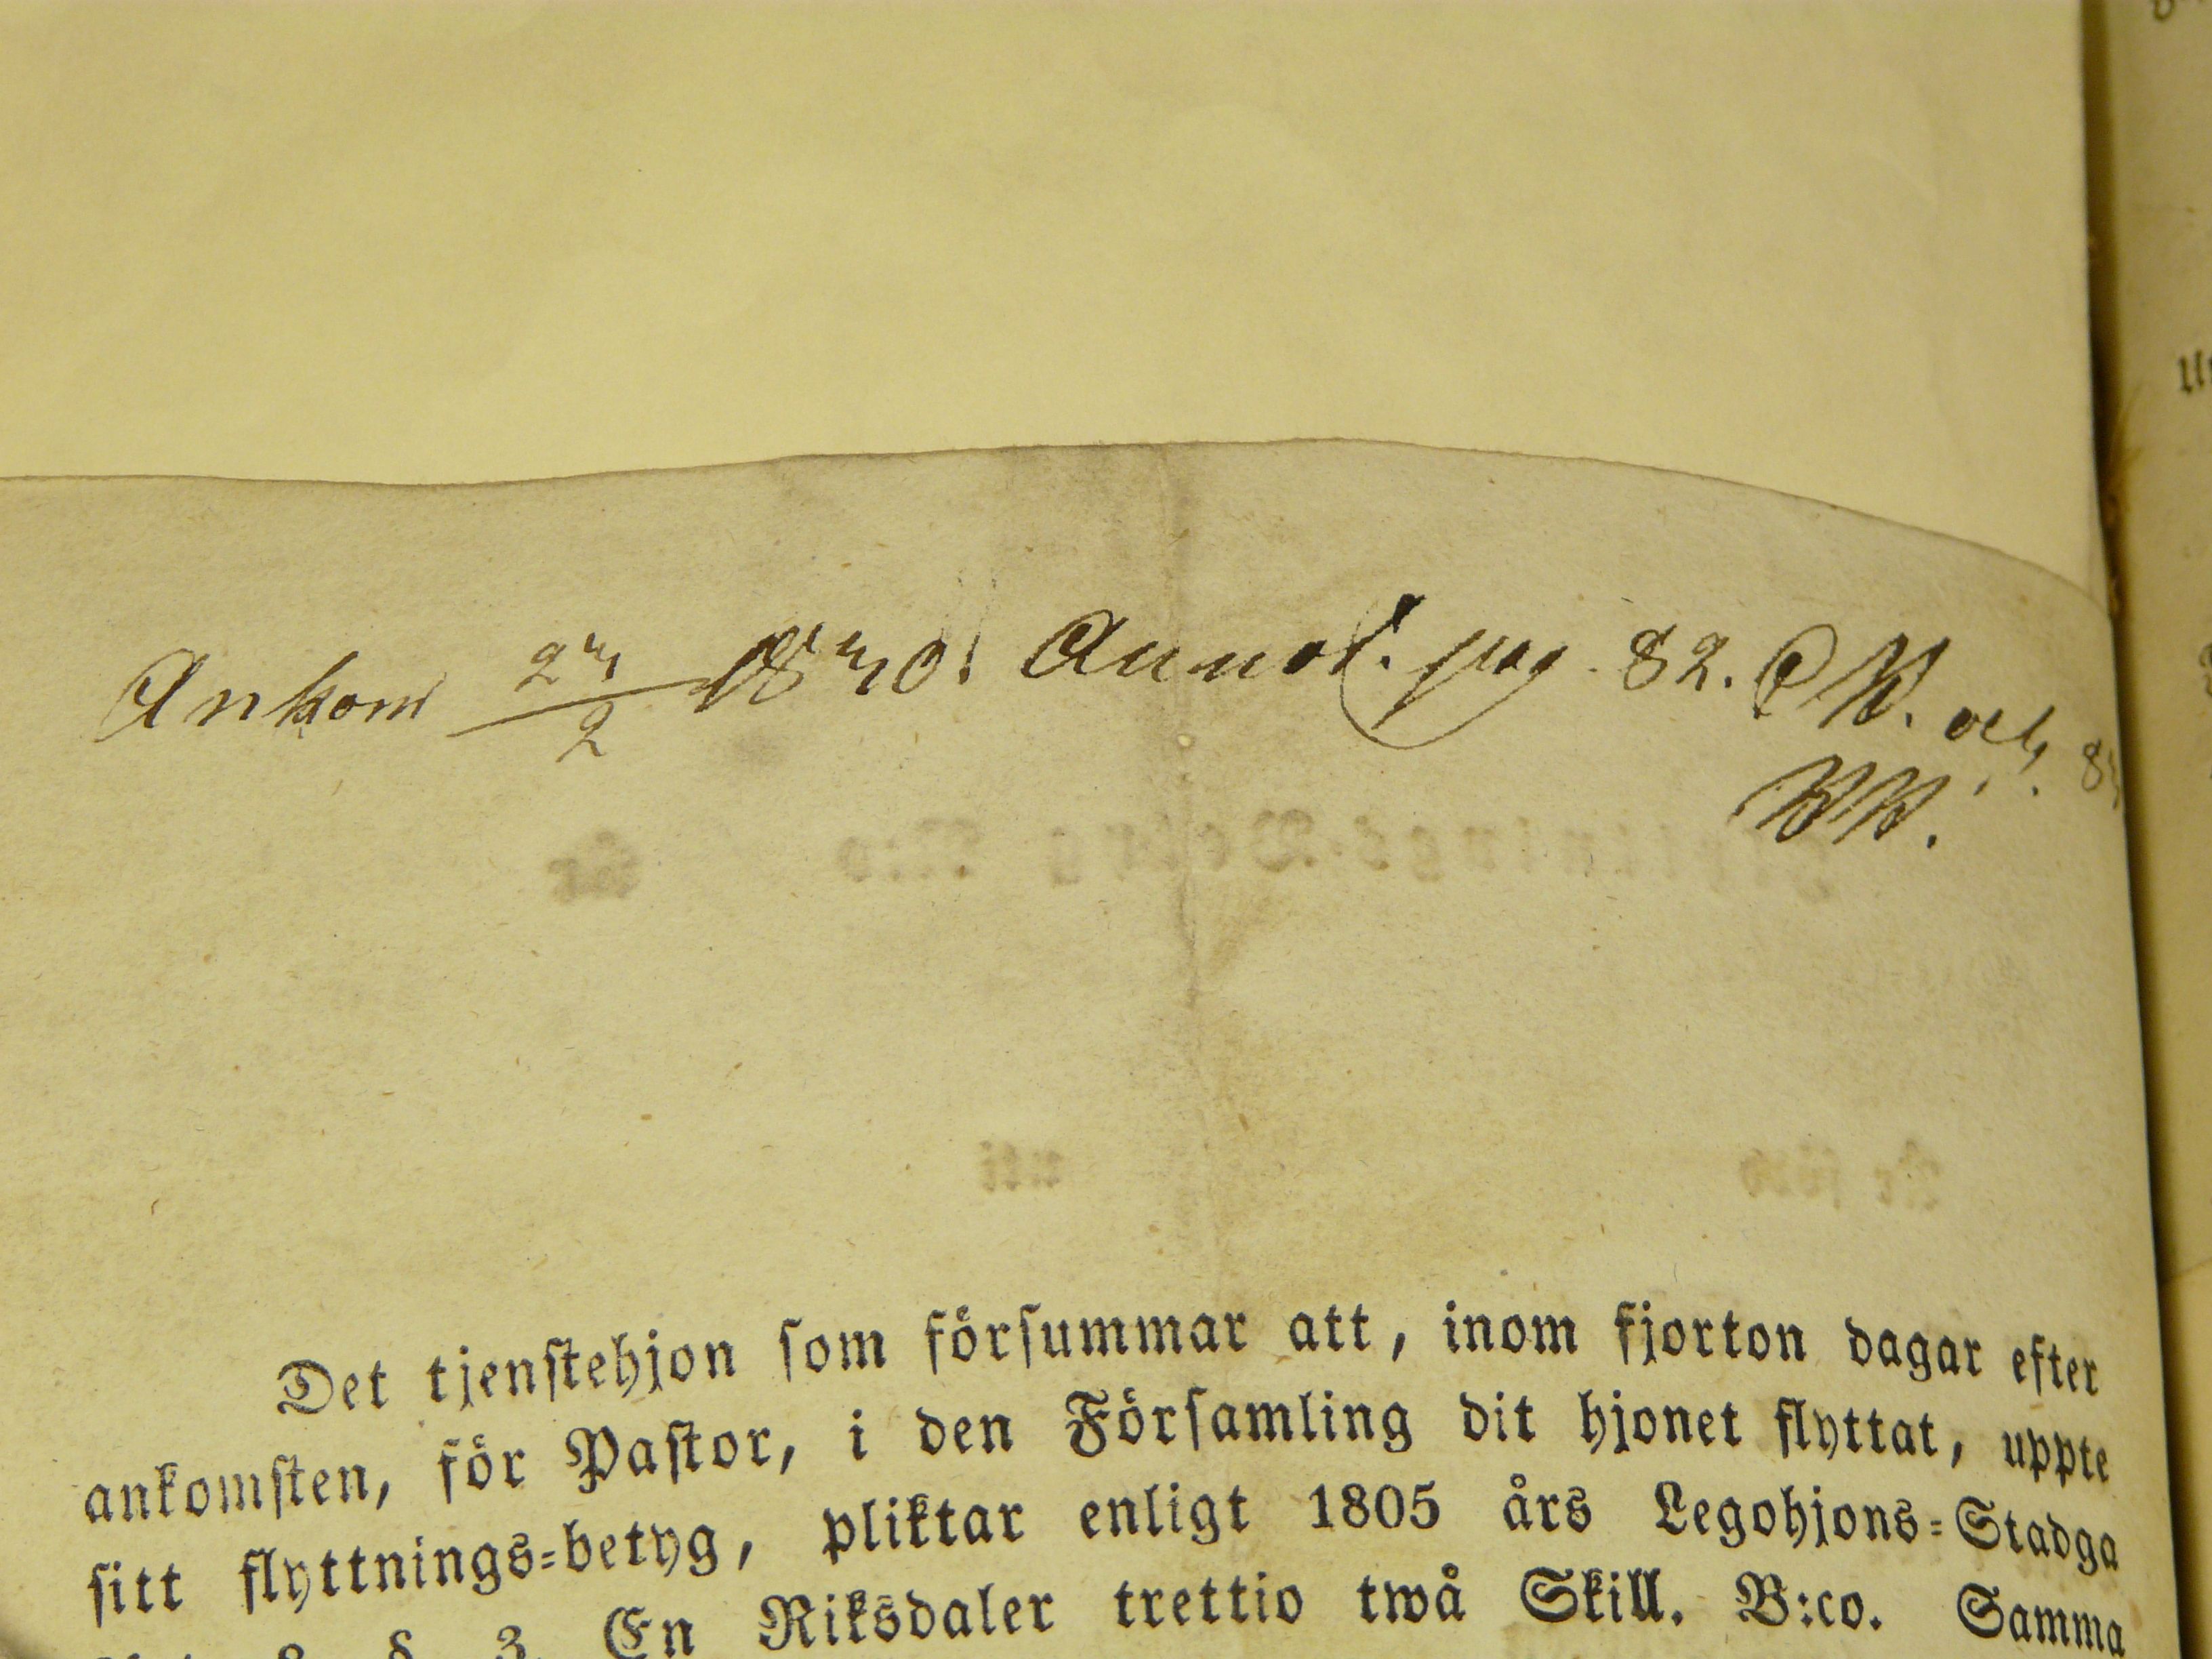 Ankom 24/2 1840. Annot. pag. 82. och
Det tjenstehjon som försummar att, inom fjorton dagar efter
ankomsten, för Pastor, i den Församling dit hjonet flyttat, uppte
sitt flyttnings=betyg, pliktar enligt 1805 års Legohjons=Stadga
En Riksdaler trettio twå Skill. B:co. Samma